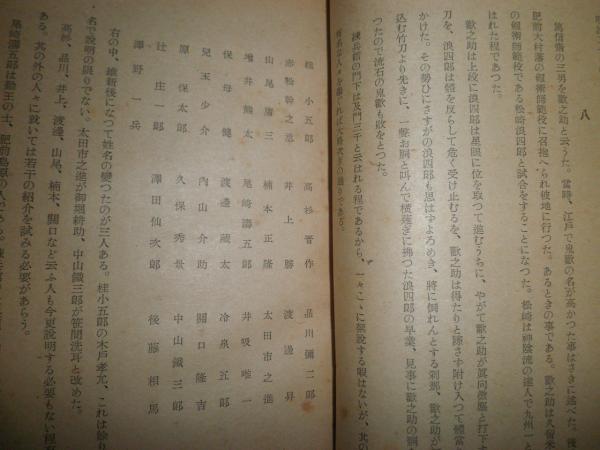 八
篤信齋の三男を歡之助と云うた。當時、江戸で鬼歡の名が高かつた事はさきに述べた。後
肥前大村藩の劍術師範役に召抱へられ彼地に行つた。あるときの事である。歡之助は久留米
の劍術師範役である松崎浪四郎と試合をすることになつた。松崎は神陰流の達人で九州一と
はれた程であつた。
歡之助は上段に浪四郎は星眼に位を取つて進むうちに、やがて歡之助が眞向微塵と打下す
刀を、浪四郎は體を反らして危く受け止むるを、歡之助は得たりと隙さず附け入つて體當
かけた。その勢ひにさすがの浪四郎も思はずよろめき、將に倒れんとする刹那、歡之助が
込む竹刀より先きに、一聲お胴と叫んで橫薙ぎに拂つた浪四郎の早業、見事に歡之助の胴
つたので流石の鬼歡も敗をとつた。
練兵館の門下は及門三千と云はれる程であるから、一々こゝに解說する暇はないが、其の
有名な人々を擧ぐれば大略次ぎの通りである。
桂小五郎 高杉晋作 品川彌二郎
赤松幹之進 井上勝 渡邊昇
山尾庸三 楠本正隆 太田市之進
增井熊太 尾崎濤五郎 井吸唯一
保母健 渡邊藏太 冷泉五郎
兒玉少介 內山介助 關口隆吉
原保太郎 久保秀景 中山鐵三郎
辻庄一郎 澤田仙次郎 後藤相馬
澤野一兵
右の中、維新後になつて姓名の變つたのが三人ある。桂小五郎の木戸孝允、これは餘り
名で說明の限りでない。太田市之進が御堀耕助、中山鐵三郎が笹間洗耳と改めた。
高杉、品川、井上、渡邊、山尾、楠本、關口など云ふ人も今更說明する必要もない程
ある。其の外の人々に就いては若干の紹介を試みる必要があらう。
尾崎濤五郎は勤王の士、肥前島原の人である。